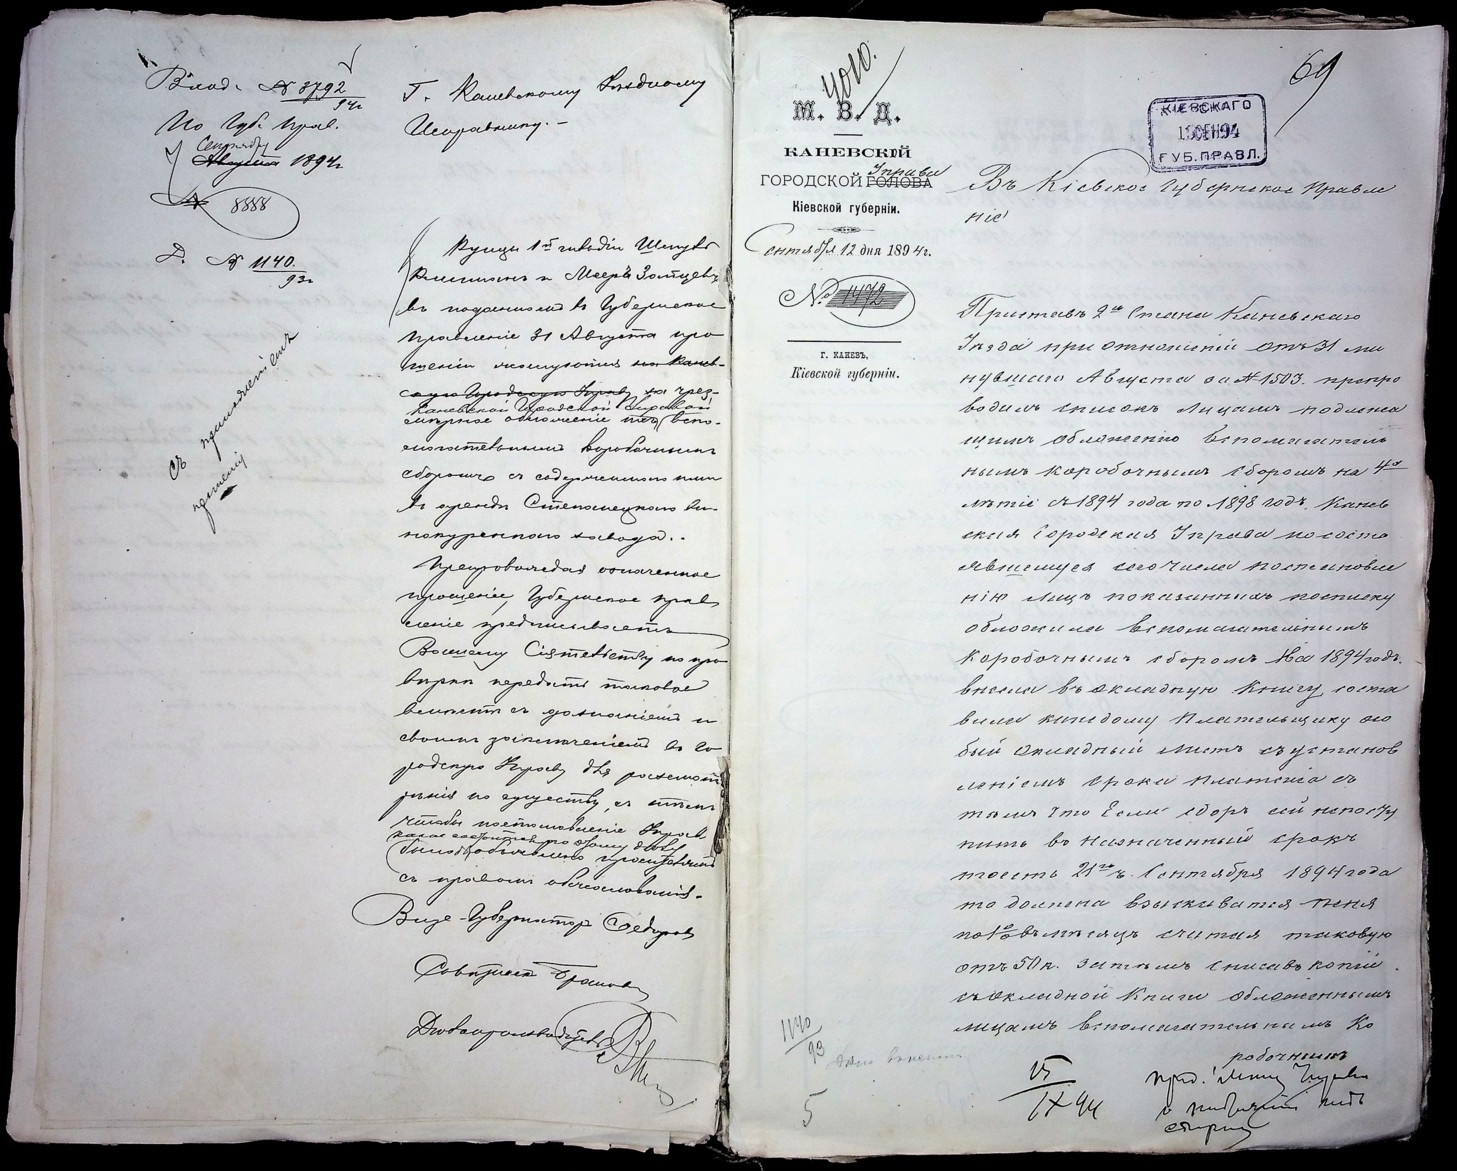 Вход. № 8792
94г
По Губ. Прав.
Сентября
Августа 1894г
№ 8888
Д. № 1140.
93г
съ приложеніемъ
прошенія
Г. Каневскому Уѣздному
Исправнику.-
Купцы 1й гильдіи
и Мееръ Зайцевъ
въ поданномъ въ Губернское
Правленіе 31 Августа про-
шеніи жалуются на Канев-
скую Городскую Управу за чрез-
Каневской Городской Управой
мѣрное обложеніе ихъ вспо-
могательнымъ коробочнымъ
сборомъ съ содержимаго ими
въ арендѣ Степанецкаго ви-
нокуреннаго завода..
Препровождая означенное
прошеніе, Губернское Прав
леніе предписываетъ
Вашему Благородію по про-
вѣркѣ передать таковое
вмѣстѣ съ дознаніемъ и
своимъ заключеніемъ въ Го
родскую Управу для разсмот
рѣнія по существу, съ тѣмъ
чтобы постановленіе Управы
какое состоится по этому дѣлу
было объявлено просителямъ
съ правомъ обжалованія.
Вице-Губернаторъ Федоровъ
Совѣтникъ
Дѣлопроизводитель
4010.
М. В. Д.
КАНЕВСКОЙ
Управы
ГОРОДСКОЙ ГОЛОВА
Кіевской губерніи.
Сентября 12 дня 1894г.
№ 1472
Г. КАНЕВЪ,
Кіевской губерніи.
69
КІЕВСКАГО
13 СЕН 94
ГУБ. ПРАВЛ.
Въ Кіевское Губернское Правле
ніе
Приставъ 2го Стана Каневскаго
Уѣзда при отношеніи отъ 31 ми
нувшаго Августа за № 1503. препро
водилъ списокъ лицамъ подлежа
щимъ обложенію вспомагатель
нымъ коробочнымъ сборомъ на 4хъ
лѣтіе съ 1894 года по 1898 годъ. Канев
ская Городская Управа по состо
явшемуся сего числа постановле
нію лицъ показанныхъ по списку
обложила вспомагательнымъ
коробочнымъ сборомъ На 1894 годъ.
внесла въ окладную книгу соста
вила каждому плательщику осо
бый окладный листъ съ установ
леніемъ срока платежа съ
тѣмъ что Если сборъ сей непосту
питъ въ назначенный срокъ
тоесть 21го Сентября 1894 года
то должна взыскиватся пеня
по 1% въ мѣсяцъ считая таковую
отъ 50 к. Затѣмъ списавъ копіи
съ окладной Книги обложеннымъ
лицамъ вспомагательнымъ Ко
робочнымъ
1140
93
5
15
IX 94